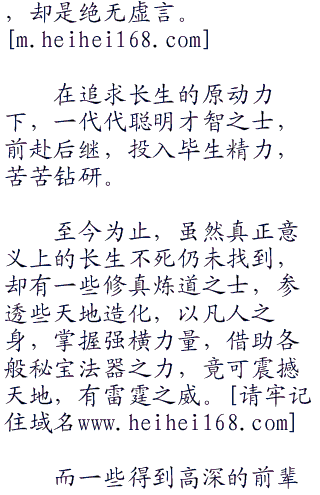 ，却是绝无虚言。
[m.heihei168.com]
在追求长生的原动力
下，一代代聪明才智之士，
前赴后继，投入毕生精力，
苦苦钻研。
至今为止，虽然真正意
义上的长生不死仍未找到，
却有一些修真炼道之士，参
透些天地造化，以凡人之
身，掌握强横力量，借助各
般秘宝法器之力，竟可震撼
天地，有雷霆之威。[请牢记
住域名www.heihei168.com]
而一些得到高深的前辈